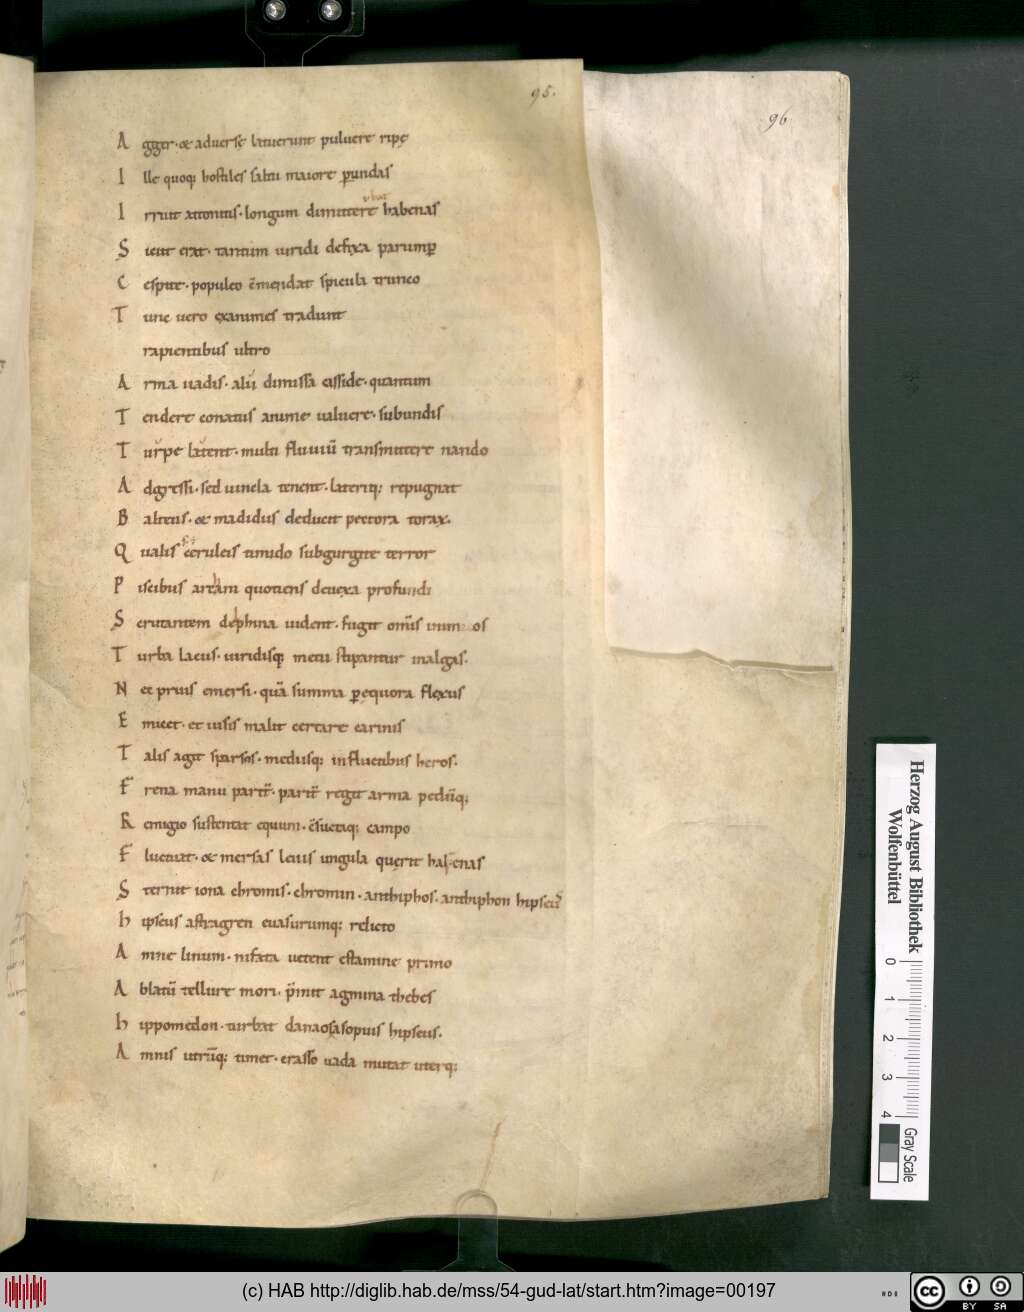 95.
96
A gger· & aduerse latuerunt puluere ripę
I lle quoq; hostiles saltu maiore ꝑundas
I rruit attonitis· longum dimittere habenas
S icut erat· tantum uiridi defixa parumꝑ
C espite· populeo cōmendat spicula trunco
T unc uero exanimes tradunt
rapientibus ultro
A rma uadis· alii dimissa casside· quantum
T endere conatus anime ualuere· subundis
T urpe latent· multi fluuiū transmittere nando
A dgressi· sed uincla tenent· lateriq; repugnat
B alteus· & madidus deducit pectora torax.
Q ualis cęruleis tumido subgurgite terror
P iscibus archam quotiens deuexa profundi
S crutantem delphina uident· fugit omīs inimos
T urba lacus· uiridisq; metu stipantur inalgas.
N ec prius emersi· quā summa ꝑequora flexus
E micet· et uisis malit certare carinis
T alis agit sparsos· mediisq; influctibus heros.
F rena manu parit̄· parit̄ regit arma pedūq;
R emigio sustentat equum· cōsuetaq; campo
F luctuat· & mersas leuis ungula quęrit harenas
S ternit iona chromis· chromin· anthiphos· anthiphon hipseus
h ipseus astyagren euasurumq; relicto
A mne linum· nifata uetent & stamine primo
A blatū tellure mori· p̄mit agmina thebes
h ippomedon· turbat danaosasopius hipseus.
A mnis utrūq; timet· crasso uada mutat uterq;
Herzog August Bibliothek
Wolfenbüttel
0 1 2 3 4
Gray Scale
(c) HAB http://diglib.hab.de/mss/54-gud-lat/start.htm?image=00197
cc BY SA